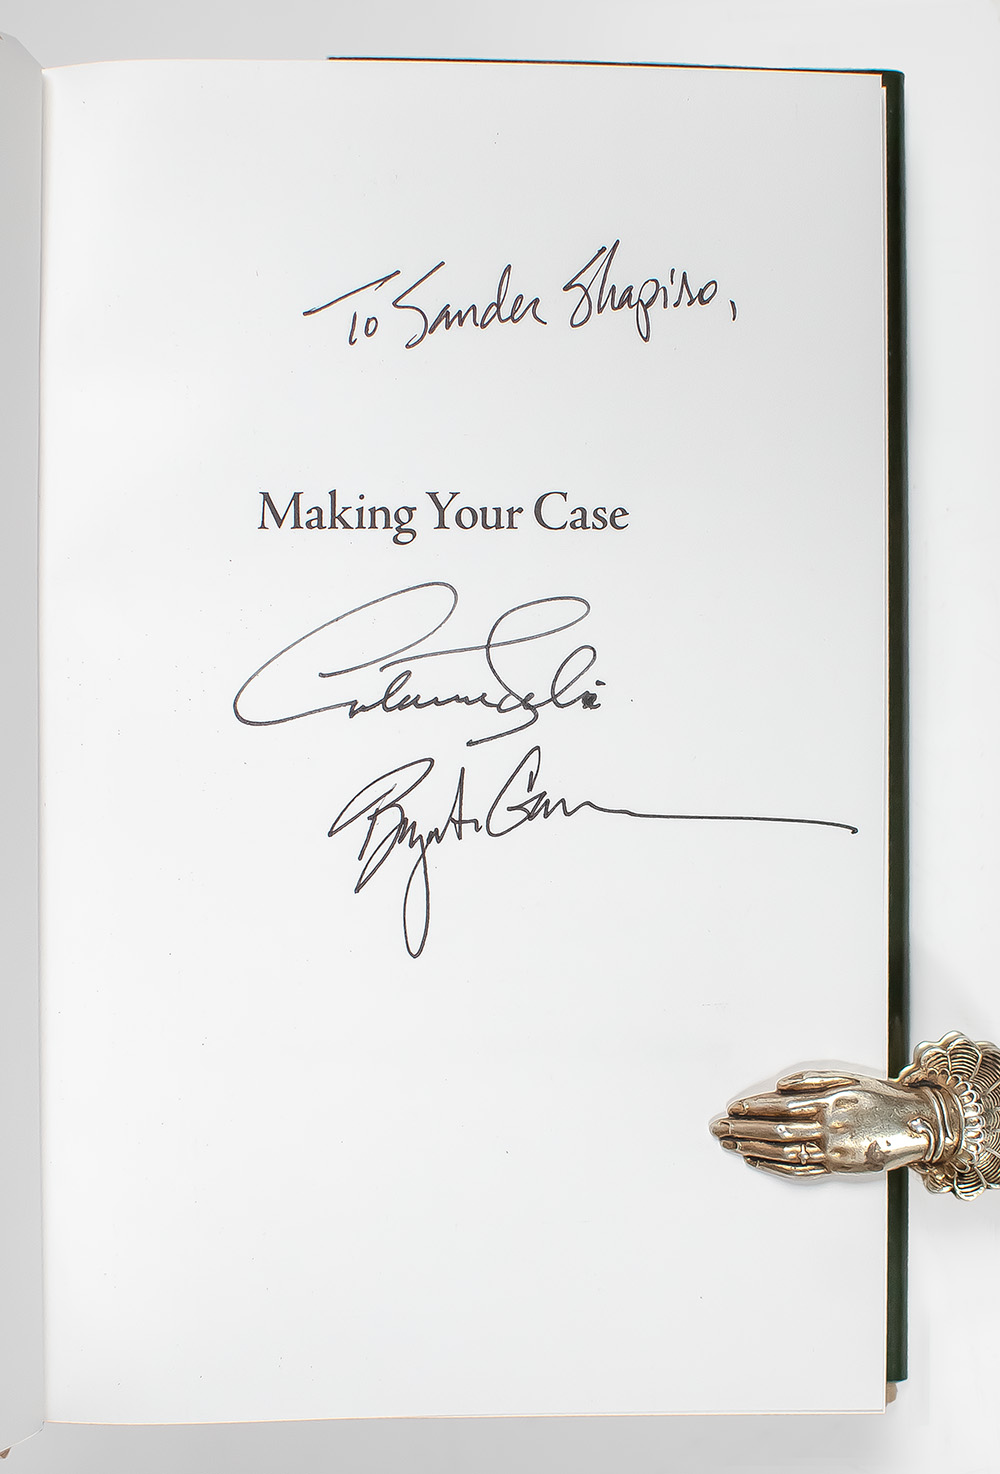 To Sander Shapiro,
Making Your Case
Antonin Scalia
Bryan A. Garner